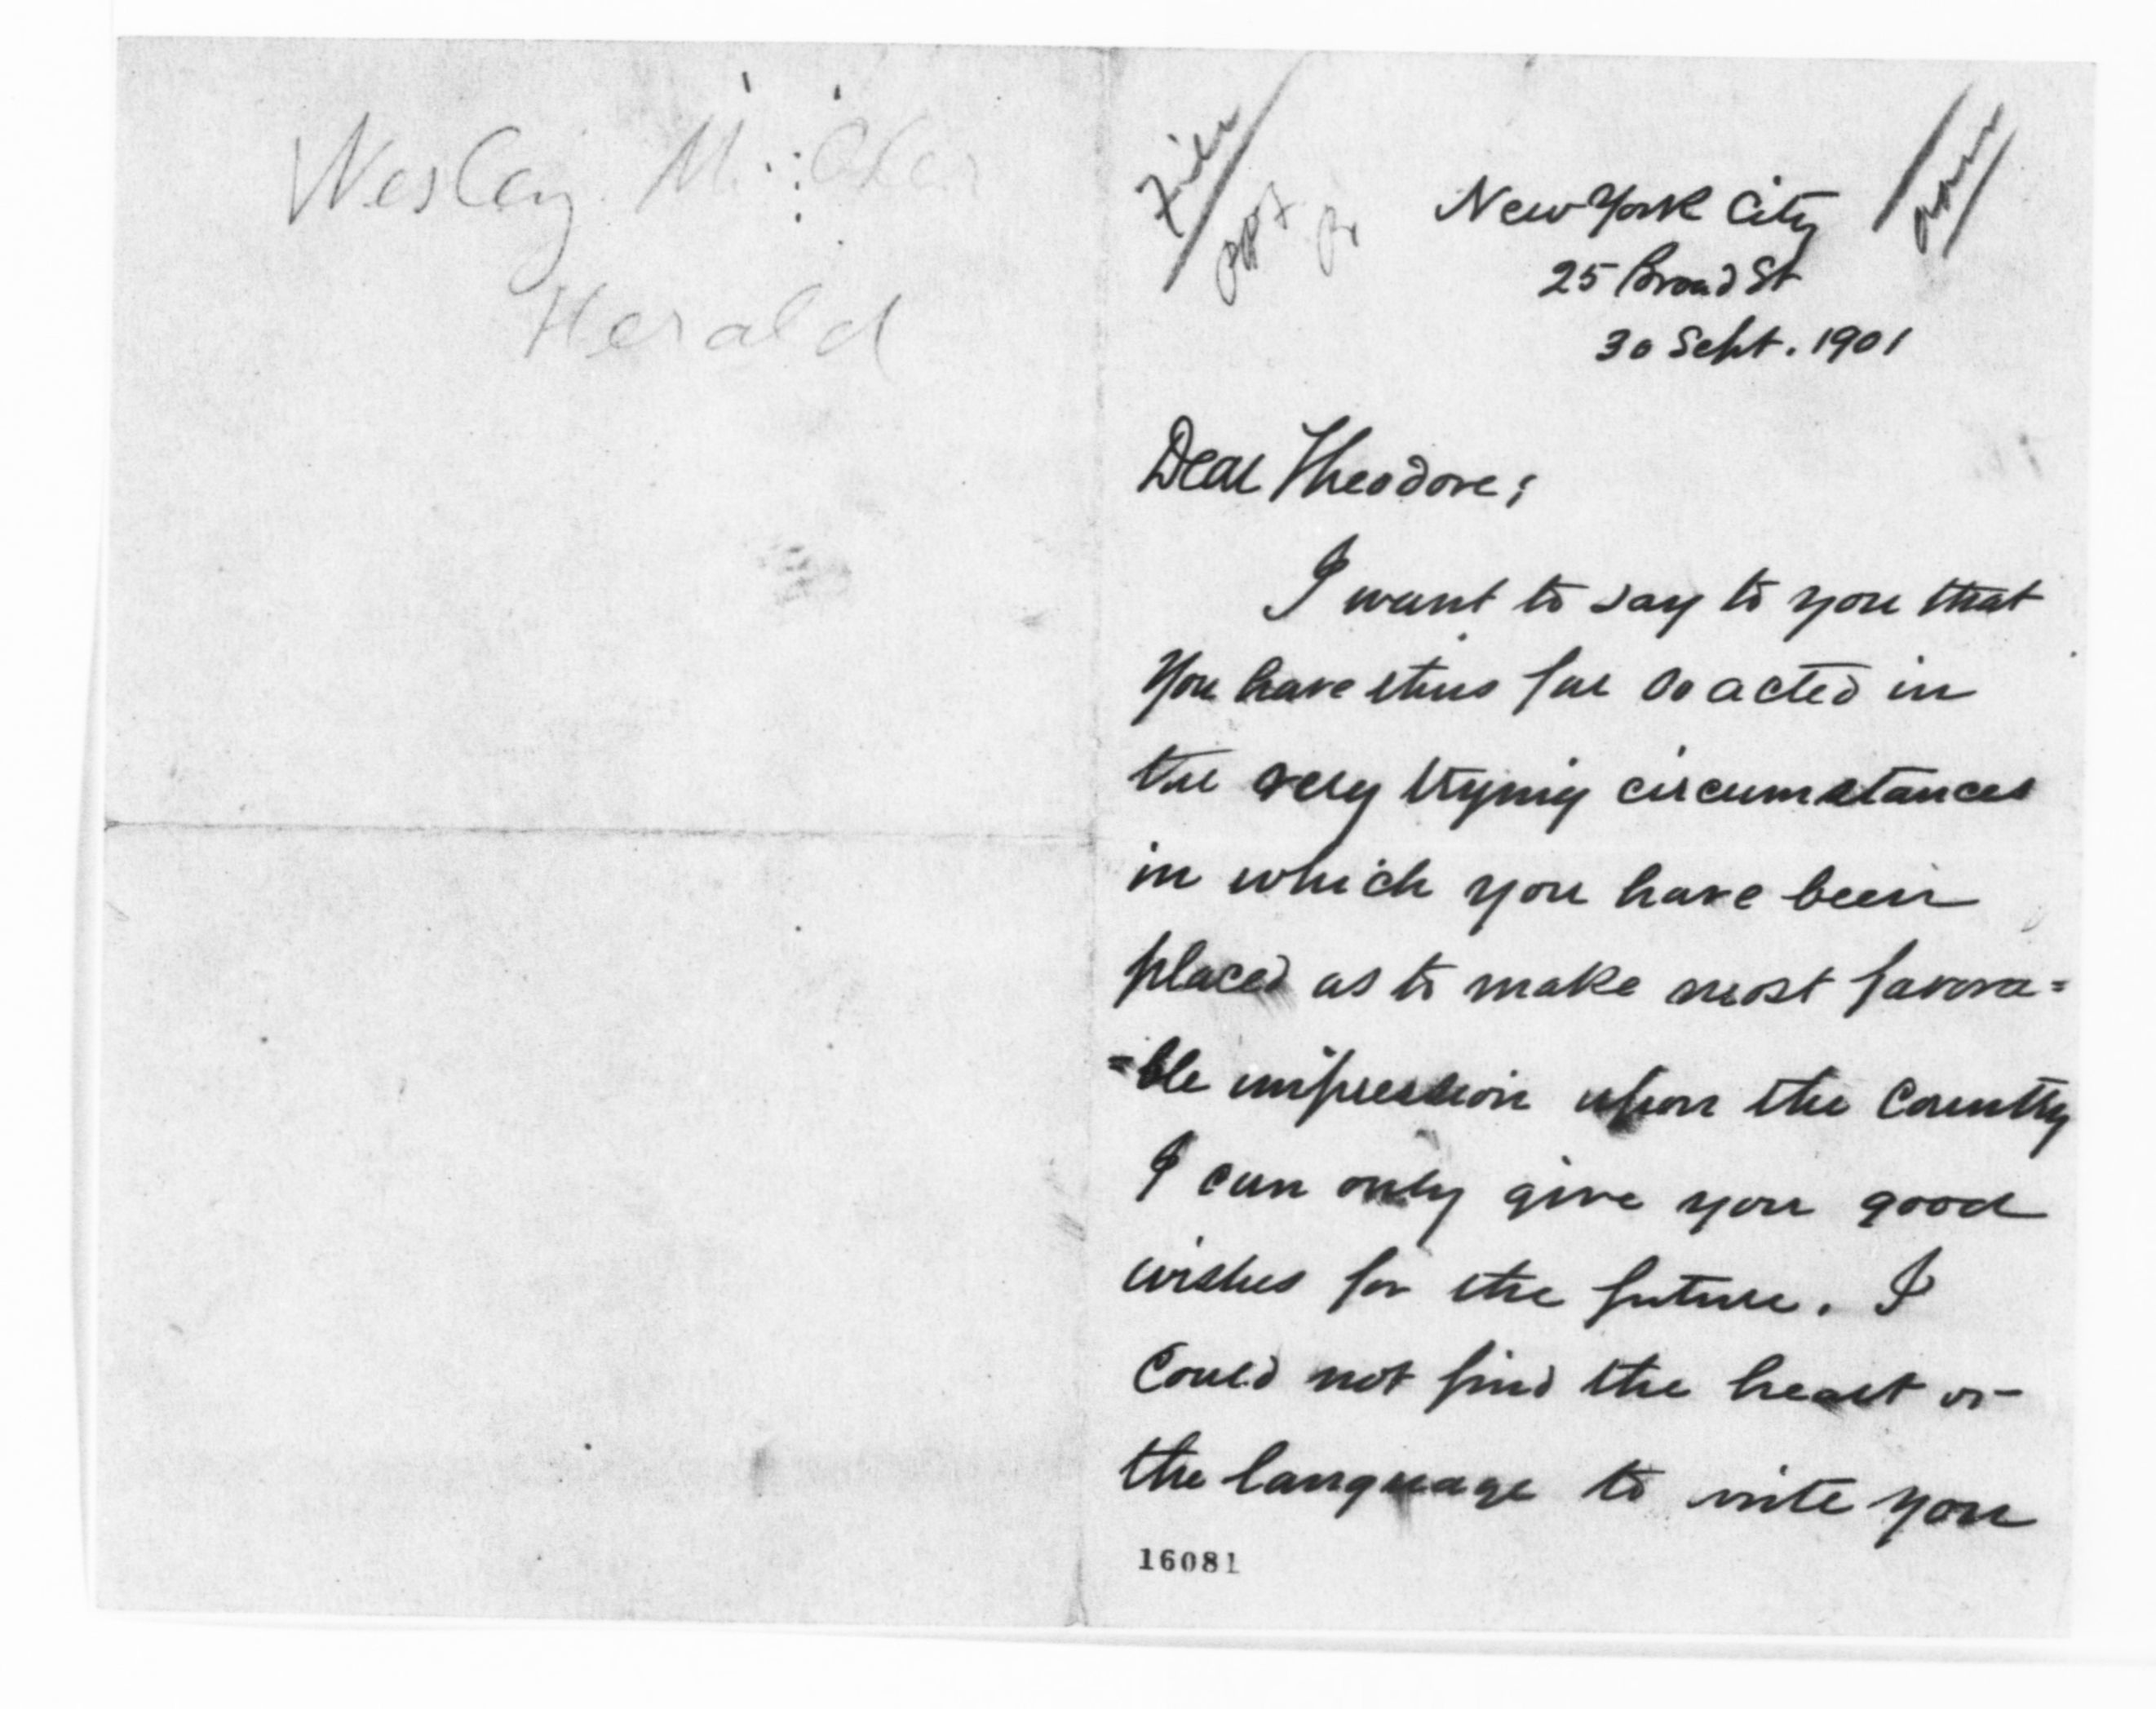 Wesley
Herald
File
New York City
25 Broad St
30 Sept. 1901
Dear Theodore;
I want to say to you that
you have thus far so acted in
the very trying circumstances
in which you have been
placed as to make most favora=
=ble impression upon the country
I can only give you good
wishes for the future. I
could not find the heart or
the language to write you
16081